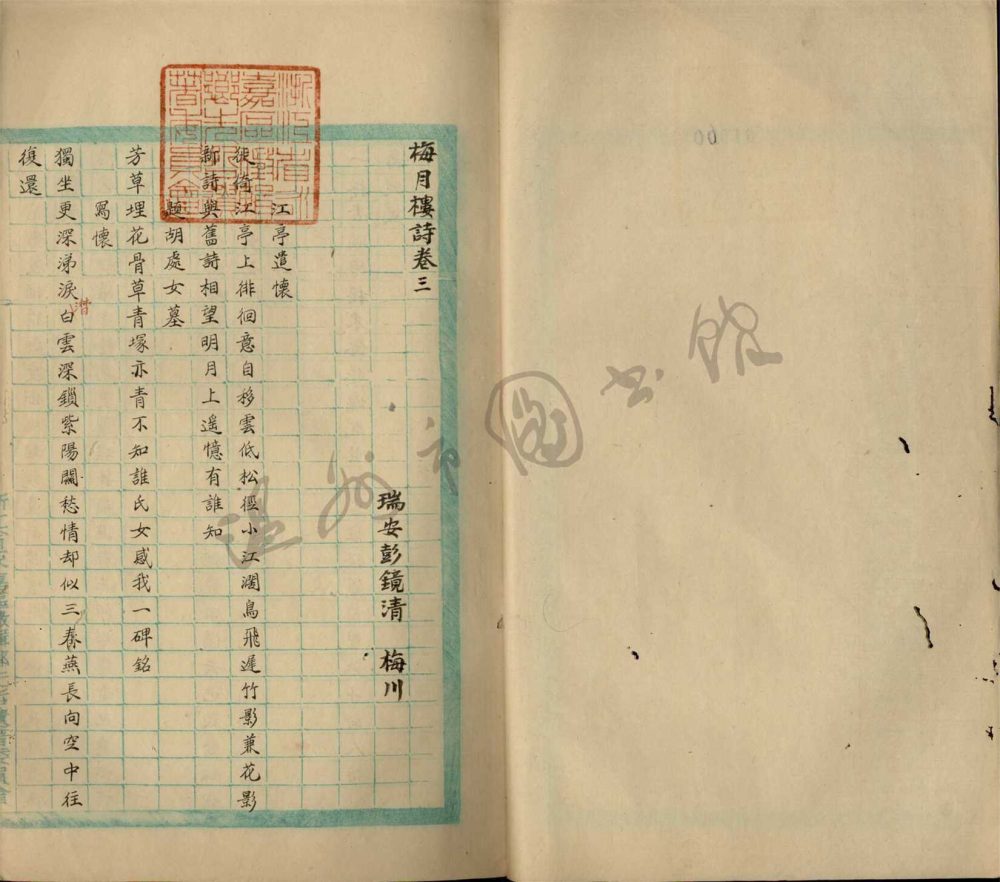 溫州市圖書館
梅月樓詩卷三
瑞安彭鏡清 梅川
江亭遣懷
徙倚江亭上徘徊意自移雲低松徑小江濶鳥飛遲竹影兼花影
新詩與舊詩相望明月上遥憶有誰知
題胡處女墓
芳草埋花骨草青塚亦青不知誰氏女感我一碑銘
寫懷
獨坐更深涕淚潸白雲深鎖紫陽關愁情却似三春燕長向空中往
復還
浙江省永
嘉區徵輯
鄉先哲遺
著委員會